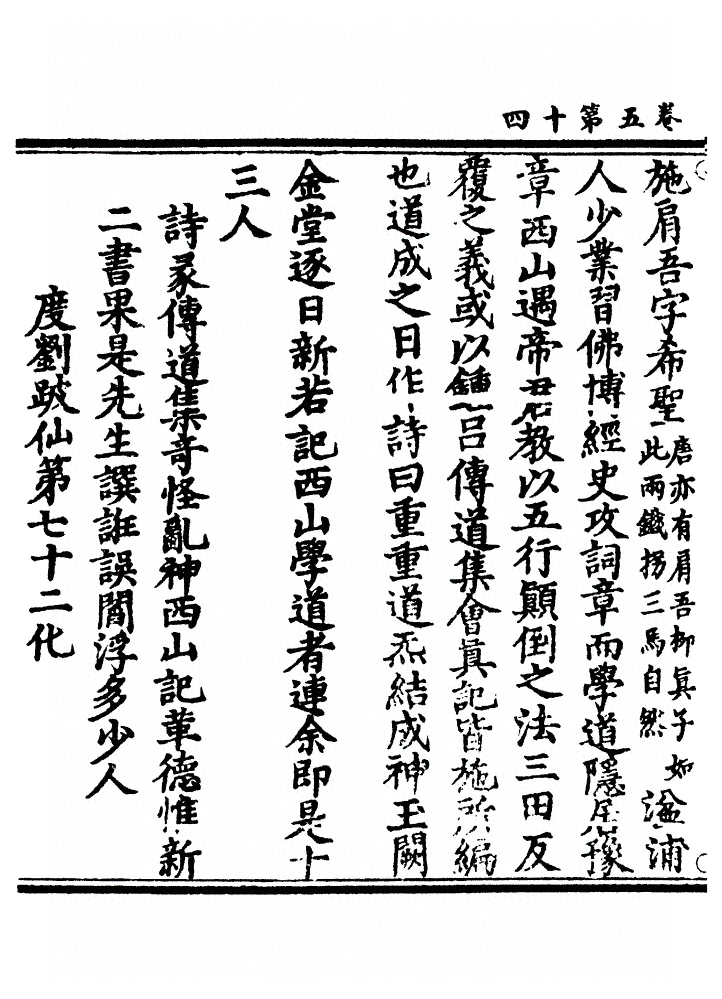 卷五第十四
施肩吾字希聖唐亦有肩吾栁眞子如此兩鐵拐三馬自然湓浦
人少業習佛博經史攻詞章而學道隱居豫
章西山遇帝君教以五行顚倒之法三田反
覆之義或以鍾吕傳道集會眞記皆施所編
也道成之日作詩曰重重道炁結成神玉闕
金堂逐日新若記西山學道者連余即是十
三人
詩彖傳道集竒怪亂神西山記革德惟新
二書果是先生譔誑誤閻浮多少人
度劉跛仙第七十二化